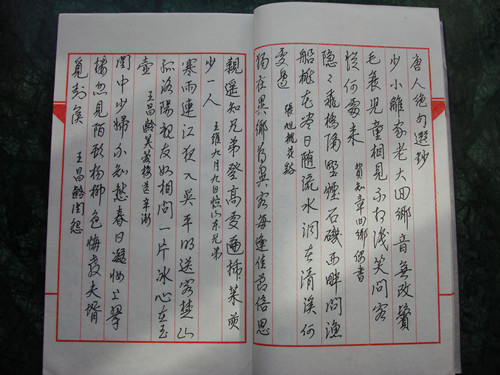 唐人绝句選抄
少小離家老大回鄉音無改鬢
毛衰兒童相見不相識笑問客
從何處来 賀知章回鄉偶書
隐々飛橋隔野煙石磯西畔問漁
船桃花尽日随流水洞在清溪何
處邊 張旭桃花谿
獨在異鄉為異客每逢佳節倍思
親遥知兄弟登高處遍插茱萸
少一人 王維九月九日憶山东兄弟
寒雨連江夜入吴平明送客楚山
孤洛陽親友如相問一片冰心在玉
壺 王昌齡芙蓉楼送辛渐
閨中少婦不知愁春日凝妝上翠
楼忽見陌頭楊柳色悔教夫婿
覓封侯 王昌齡閨怨